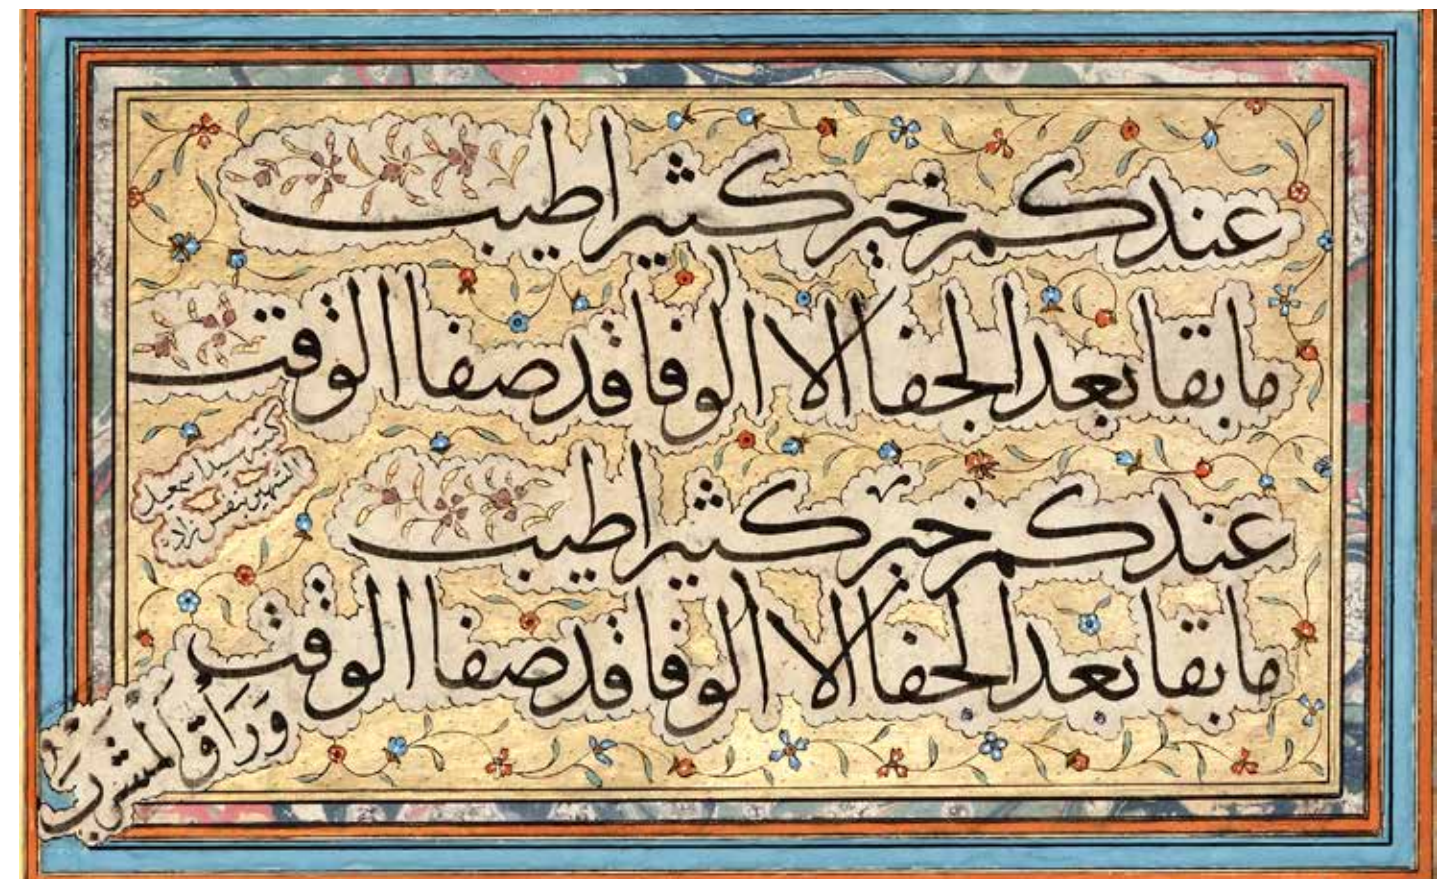 عندكم خير كثير اطيب
ما بقا بعد الجفا الا الوفا قد صفا الوقت
كتبه سيد اسمعيل
الشهير بنفس زاده
عندكم خير كثير اطيب
ما بقا بعد الجفا الا الوفا قد صفا الوقت
وَرَاقَ المشرب